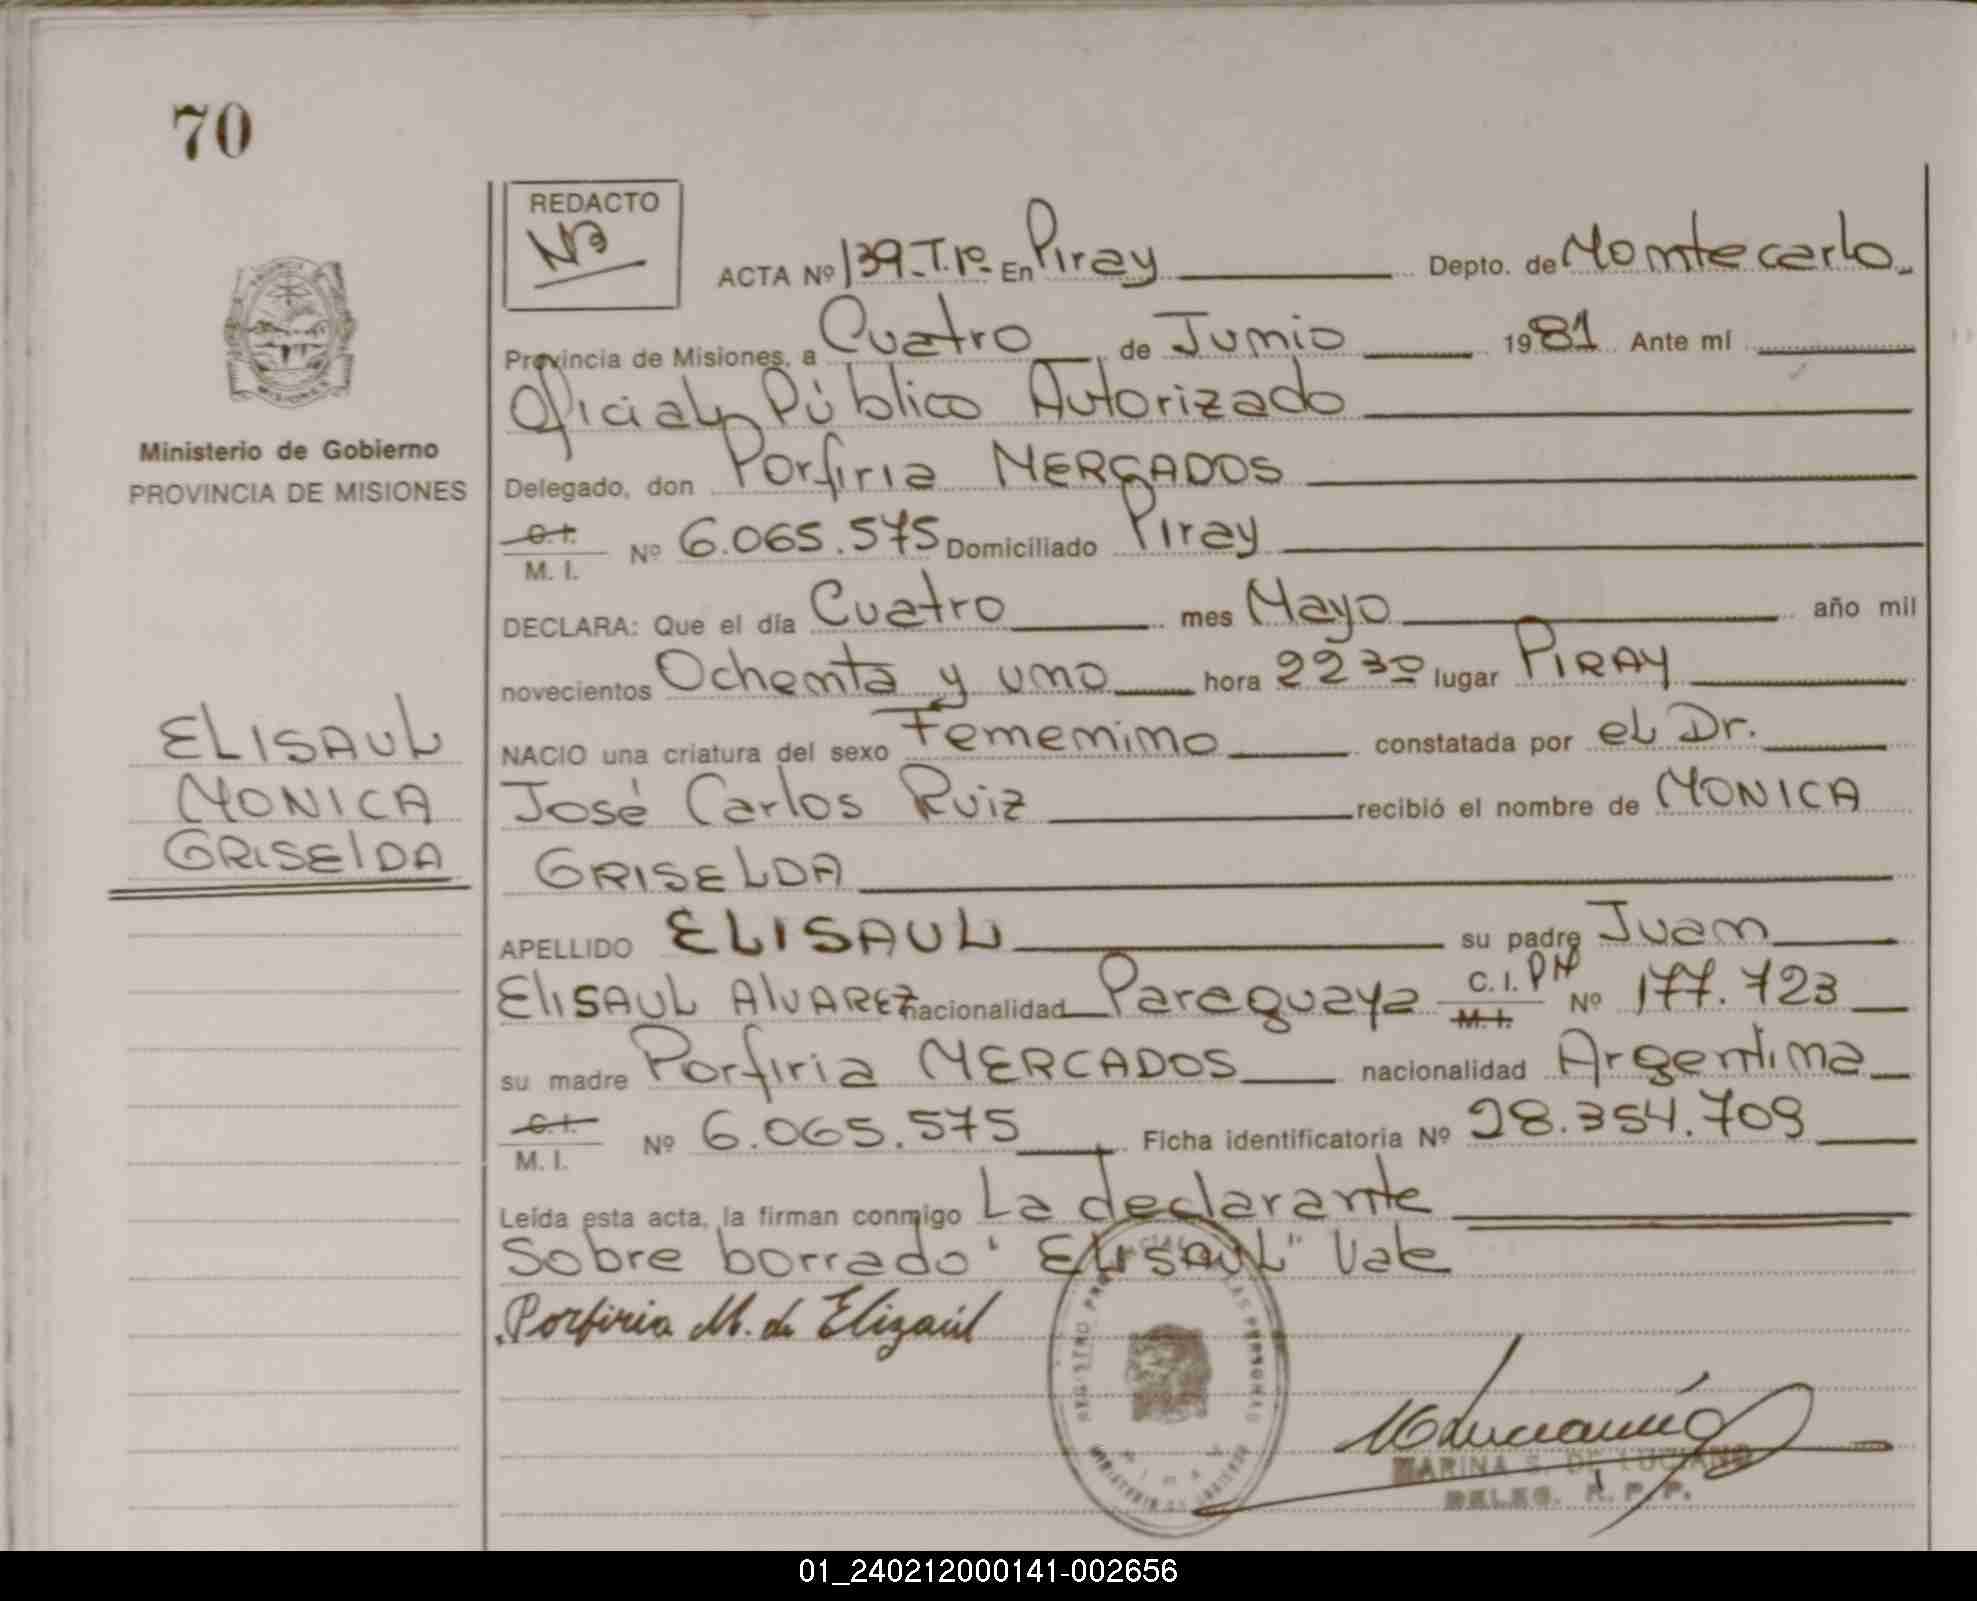 70
REDACTO
NB
ACTA Nº 139-T.1º- En Piray Depto. de Montecarlo.
Provincia de Misiones, a Cuatro, de Junio 1981 Ante mí
Oficial Público Autorizado
Delegado, don Porfiria MERCADOS
C.I. M. I. Nº 6.065.575 Domiciliado Piray
DECLARA: Que el día Cuatro mes Mayo año mil
novecientos Ochenta y uno hora 22 30 lugar PIRAY
NACIO una criatura del sexo Femenino constatada por el Dr.
José Carlos Ruiz recibió el nombre de MONICA
GRISELDA
APELLIDO ELISAUL su padre Juan
ELISAUL ALVAREZ nacionalidad Paraguaya C. I. PM M. I. Nº 177.723
su madre Porfiria MERCADOS nacionalidad Argentina
C.I. M. I. Nº 6.065.575 Ficha identificatoria Nº 28.354.709
Leída esta acta, la firman conmigo La declarante
Sobre borrado "ELISAUL" Vale
Porfiria M. de Elizaúl
MARINA S. DE LUCIANO
DELEG. R. P. P.
Ministerio de Gobierno
PROVINCIA DE MISIONES
ELISAUL
MONICA
GRISELDA
01_240212000141-002656